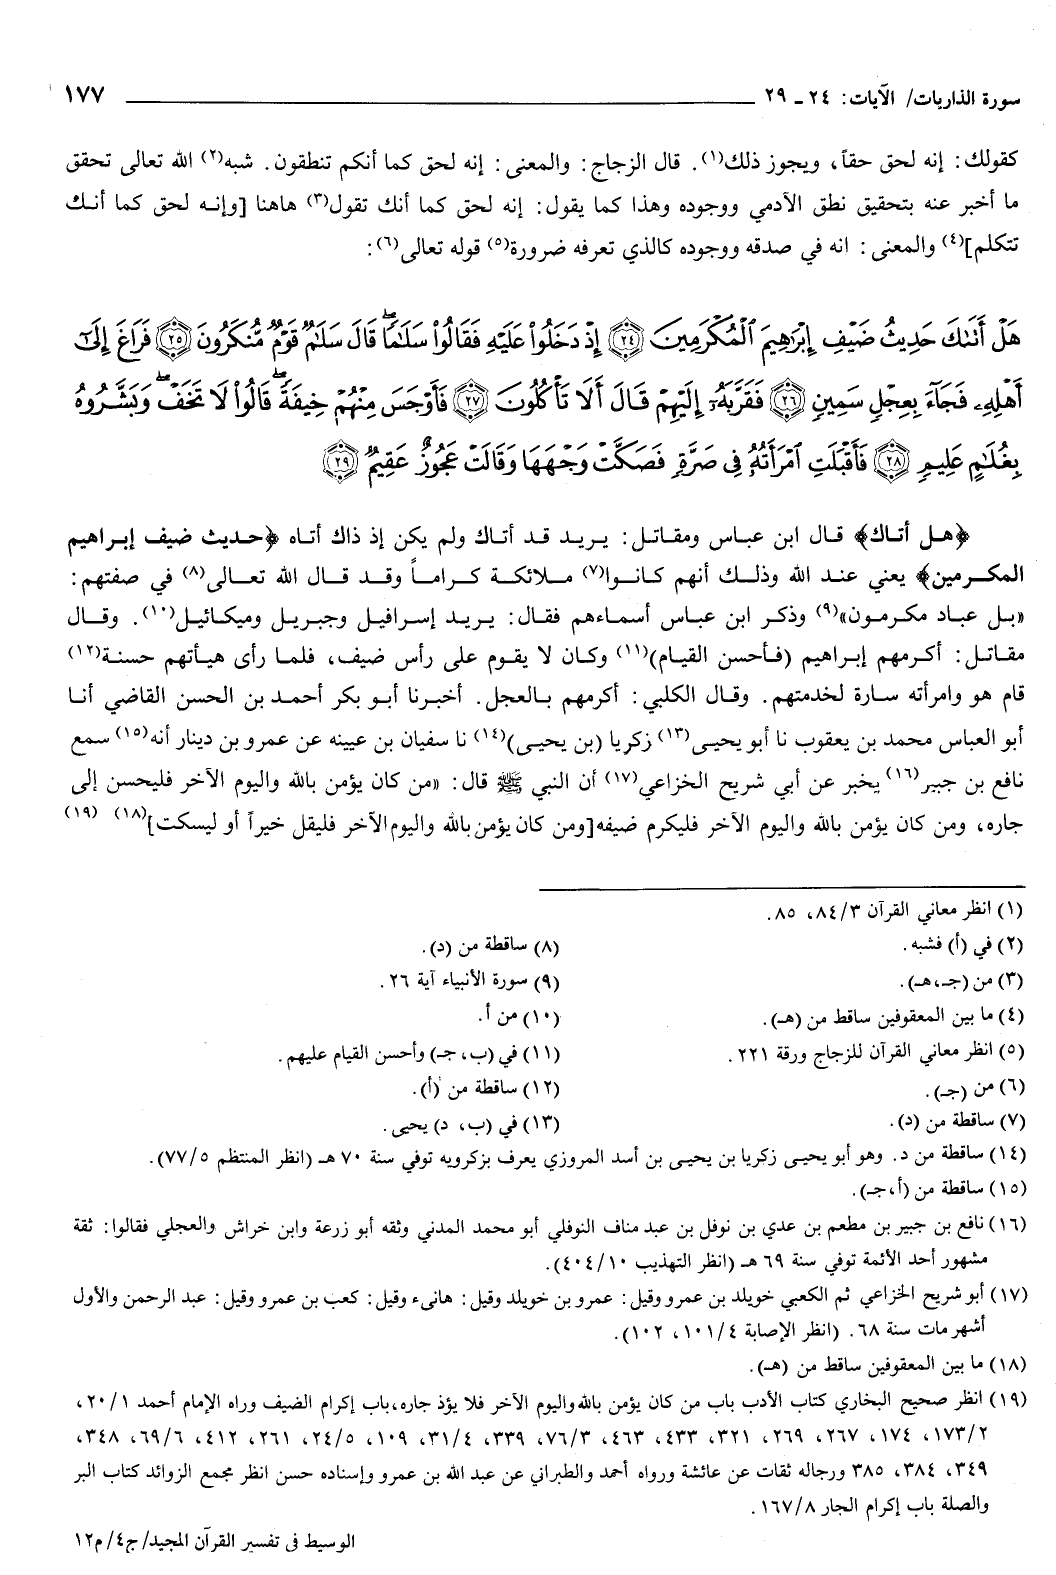 سورة الذاريات/ الآيات: ٢٤ ـ ٢٩ ١٧٧
كقولك: إنه لحق حقاً، ويجوز ذلك(١). قال الزجاج: والمعنى: إنه لحق كما أنكم تنطقون. شبه(٢) الله تعالى تحقق
ما أخبر عنه بتحقيق نطق الآدمي ووجوده وهذا كما يقول: إنه لحق كما أنك تقول(٣) هاهنا [وإنه لحق كما أنك
تتكلم](٤) والمعنى: انه في صدقه ووجوده كالذي تعرفه ضرورة(٥) قوله تعالى(٦):
هَلْ أَتَىٰكَ حَدِيثُ ضَيْفِ إِبْرَٰهِيمَ ٱلْمُكْرَمِينَ ﴿٢٤﴾ إِذْ دَخَلُوا۟ عَلَيْهِ فَقَالُوا۟ سَلَٰمًا ۖ قَالَ سَلَٰمٌ قَوْمٌ مُّنكَرُونَ ﴿٢٥﴾ فَرَاغَ إِلَىٰٓ
أَهْلِهِۦ فَجَآءَ بِعِجْلٍ سَمِينٍ ﴿٢٦﴾ فَقَرَّبَهُۥٓ إِلَيْهِمْ قَالَ أَلَا تَأْكُلُونَ ﴿٢٧﴾ فَأَوْجَسَ مِنْهُمْ خِيفَةً ۖ قَالُوا۟ لَا تَخَفْ ۖ وَبَشَّرُوهُ
بِغُلَٰمٍ عَلِيمٍ ﴿٢٨﴾ فَأَقْبَلَتِ ٱمْرَأَتُهُۥ فِى صَرَّةٍ فَصَكَّتْ وَجْهَهَا وَقَالَتْ عَجُوزٌ عَقِيمٌ ﴿٢٩﴾
﴿هل أتاك﴾ قال ابن عباس ومقاتل: يريد قد أتاك ولم يكن إذ ذاك أتاه ﴿حديث ضيف إبراهيم
المكرمين﴾ يعني عند الله وذلك أنهم كانوا(٧) ملائكة كراماً وقد قال الله تعالى(٨) في صفتهم:
«بل عباد مكرمون»(٩) وذكر ابن عباس أسماءهم فقال: يريد إسرافيل وجبريل وميكائيل(١٠). وقال
مقاتل: أكرمهم إبراهيم (فأحسن القيام)(١١) وكان لا يقوم على رأس ضيف، فلما رأى هيأتهم حسنة(١٢)
قام هو وامرأته سارة لخدمتهم. وقال الكلبي: أكرمهم بالعجل. أخبرنا أبو بكر أحمد بن الحسن القاضي أنا
أبو العباس محمد بن يعقوب نا أبو يحيى(١٣) زكريا (بن يحيى)(١٤) نا سفيان بن عيينه عن عمرو بن دينار أنه(١٥) سمع
نافع بن جبير(١٦) يخبر عن أبي شريح الخزاعي(١٧) أن النبي ﷺ قال: «من كان يؤمن بالله واليوم الآخر فليحسن إلى
جاره، ومن كان يؤمن بالله واليوم الآخر فليكرم ضيفه[ومن كان يؤمن بالله واليوم الآخر فليقل خيراً أو ليسكت](١٨) (١٩)
(١) انظر معاني القرآن ٨٤/٣، ٨٥.
(٢) في (أ) فشبه.
(٣) من (جـ، هـ).
(٤) ما بين المعقوفين ساقط من (هـ).
(٥) انظر معاني القرآن للزجاج ورقة ٢٢١.
(٦) من (جـ).
(٧) ساقطة من (د).
(٨) ساقطة من (د).
(٩) سورة الأنبياء آية ٢٦.
(١٠) من أ.
(١١) في (ب، جـ) وأحسن القيام عليهم.
(١٢) ساقطة من (أ).
(١٣) في (ب، د) يحيى.
(١٤) ساقطة من د. وهو أبو يحيى زكريا بن يحيى بن أسد المروزي يعرف بزكرويه توفي سنة ٧٠ هـ (انظر المنتظم ٧٧/٥).
(١٥) ساقطة من (أ، جـ).
(١٦) نافع بن جبير بن مطعم بن عدي بن نوفل بن عبد مناف النوفلي أبو محمد المدني وثقه أبو زرعة وابن خراش والعجلي فقالوا: ثقة
مشهور أحد الأئمة توفي سنة ٦٩ هـ (انظر التهذيب ٤٠٤/١٠).
(١٧) أبو شريح الخزاعي ثم الكعبي خويلد بن عمرو وقيل: عمرو بن خويلد وقيل: هانىء وقيل: كعب بن عمرو وقيل: عبد الرحمن والأول
أشهر مات سنة ٦٨. (انظر الإصابة ١٠١/٤، ١٠٢).
(١٨) ما بين المعقوفين ساقط من (هـ).
(١٩) انظر صحيح البخاري كتاب الأدب باب من كان يؤمن بالله واليوم الآخر فلا يؤذ جاره، باب إكرام الضيف وراه الإمام أحمد ٢٠/١،
١٧٣/٢، ١٧٤، ٢٦٧، ٢٦٩، ٣٢١، ٤٣٣، ٤٦٣، ٧٦/٣، ٣٣٩، ٣١/٤، ١٠٩، ٢٤/٥، ٢٦١، ٤١٢، ٦٩/٦، ٣٤٨،
٣٤٩، ٣٨٤، ٣٨٥ ورجاله ثقات عن عائشة ورواه أحمد والطبراني عن عبد الله بن عمرو وإسناده حسن انظر مجمع الزوائد كتاب البر
والصلة باب إكرام الجار ١٦٧/٨.
الوسيط في تفسير القرآن المجيد/ ج٤/ م١٢